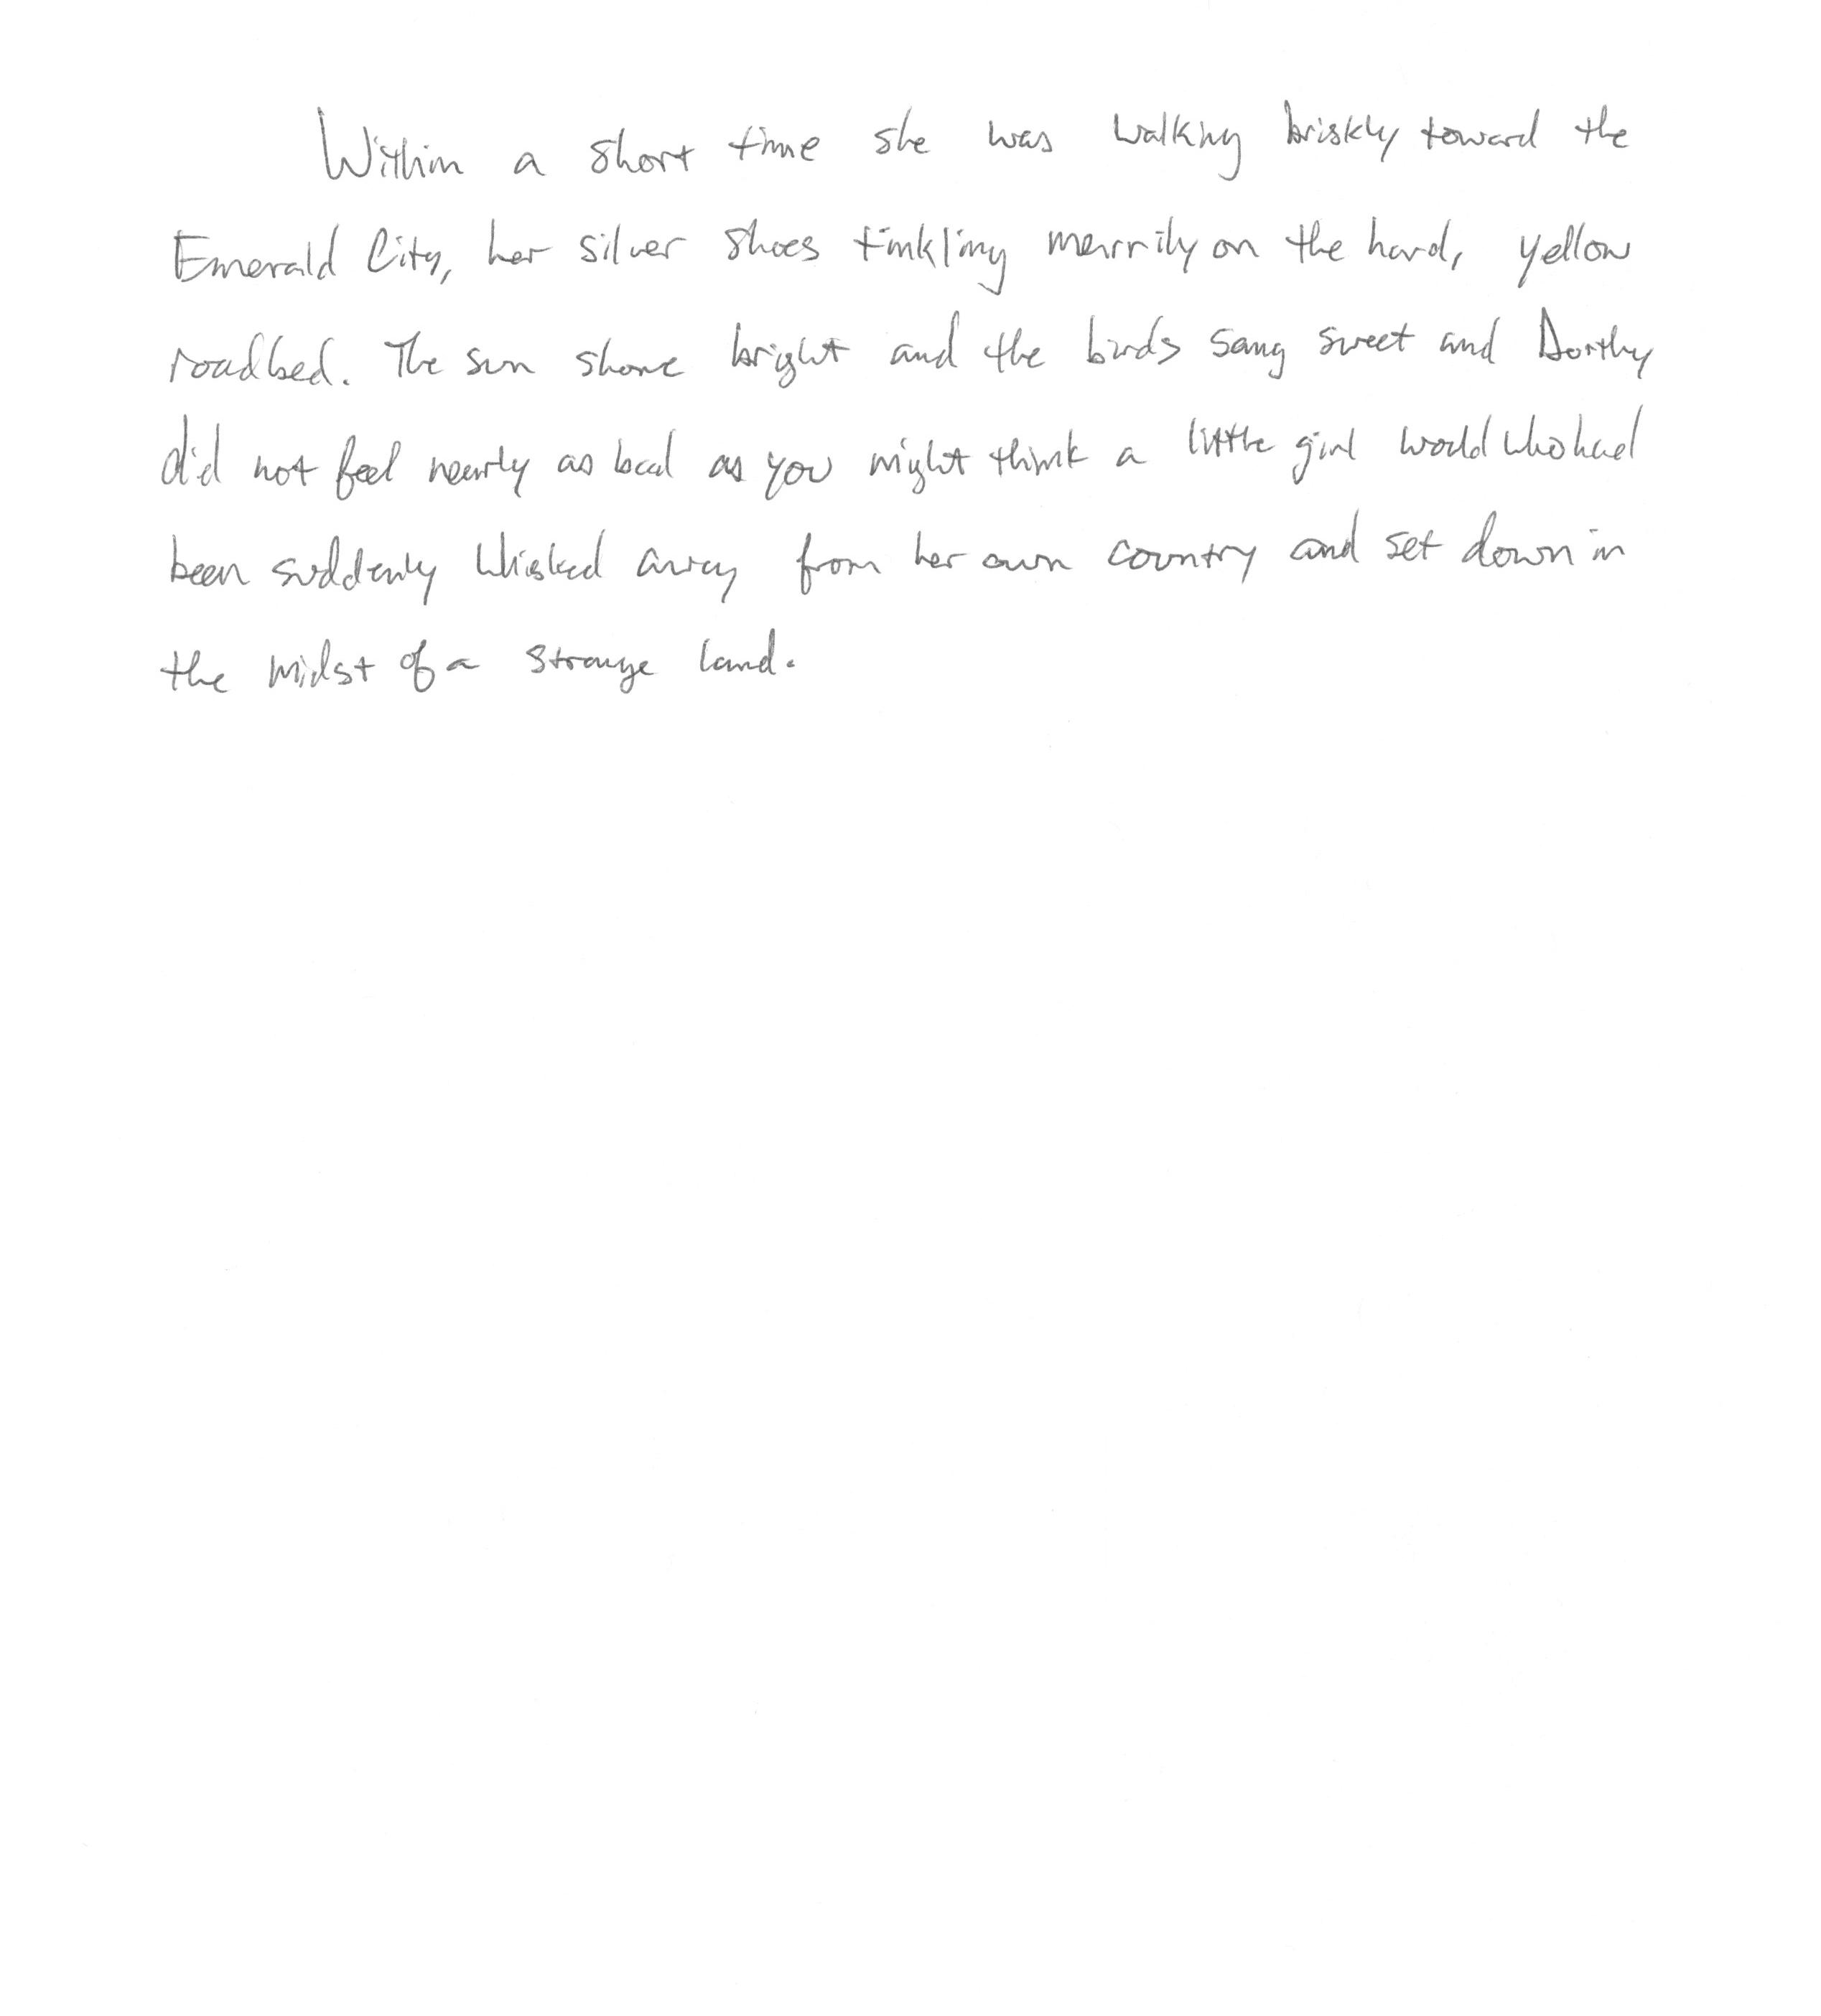 Within a short time she was walking briskly toward the
Emerald City, her silver shoes tinkling merrily on the hard, yellow
roadbed. The sun shone bright and the birds sang sweet and Dorthy
did not feel nearly as bad as you might think a little girl would who had
been suddenly whisked away from her own country and set down in
the midst of a strange land.